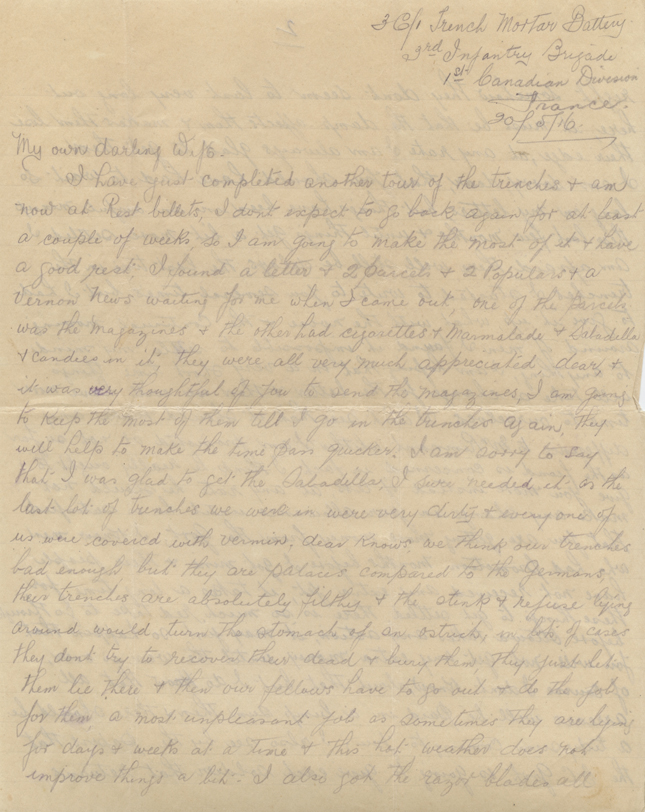 3 C/1 Trench Mortar Battery
3rd Infantry Brigade
1st Canadian Division
France.
20/5/16.
My own darling Wife.
I have just completed another tour of the trenches & am
now at Rest billets, I dont expect to go back again for at least
a couple of weeks, so I am going to make the most of it & have
a good rest. I found a letter & 2 Parcels & 2 Populars & a
Vernon News waiting for me when I came out, one of the parcels
was the magazines & the other had cigarettes & Marmalade & Sabadilla
& candies in it, they were all very much appreciated, dear, &
it was very thoughtful of you to send the magazines, I am going
to keep the most of them till I go in the trenches again, they
will help to make the time pass quicker. I am sorry to say
that I was glad to get the Sabadilla, I sure needed it as the
last lot of trenches we were in were very dirty & everyone of
us were covered with vermin, dear knows we think our trenches
bad enough but they are palaces compared to the Germans,
their trenches are absolutely filthy & the stink & refuse lying
around would turn the stomach of an ostrich, in lots of cases
they dont try to recover their dead & bury them, they just let
them lie there & then our fellows have to go out & do the job
for them, a most unpleasant job as sometimes they are lying
for days & weeks at a time & this hot weather does not
improve things a bit. I also got the razor blades all